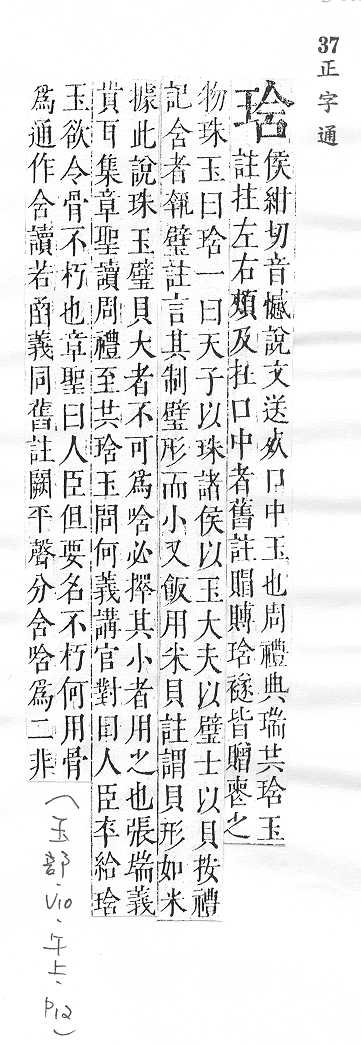 37 正字通
琀
侯紺切音憾說文送歿口中玉也周禮典瑞共琀玉
註拄左右顛及在口中者舊註賵賻琀襚皆贈喪之
物珠玉曰琀一曰天子以珠諸侯以玉大夫以璧士以貝按禮
記含者執璧註言其制璧形而小又飯用米貝註謂貝形如米
據此說珠玉璧貝大者不可爲唅必擇其小者用之也張端義
貴耳集章聖讀周禮至共琀玉問何義講官對曰人臣卒給琀
玉欲令骨不朽也章聖曰人臣但要名不朽何用骨
爲通作含讀若圅義同舊註闕平聲分含唅爲二非
(玉部.V10.午上.P12)